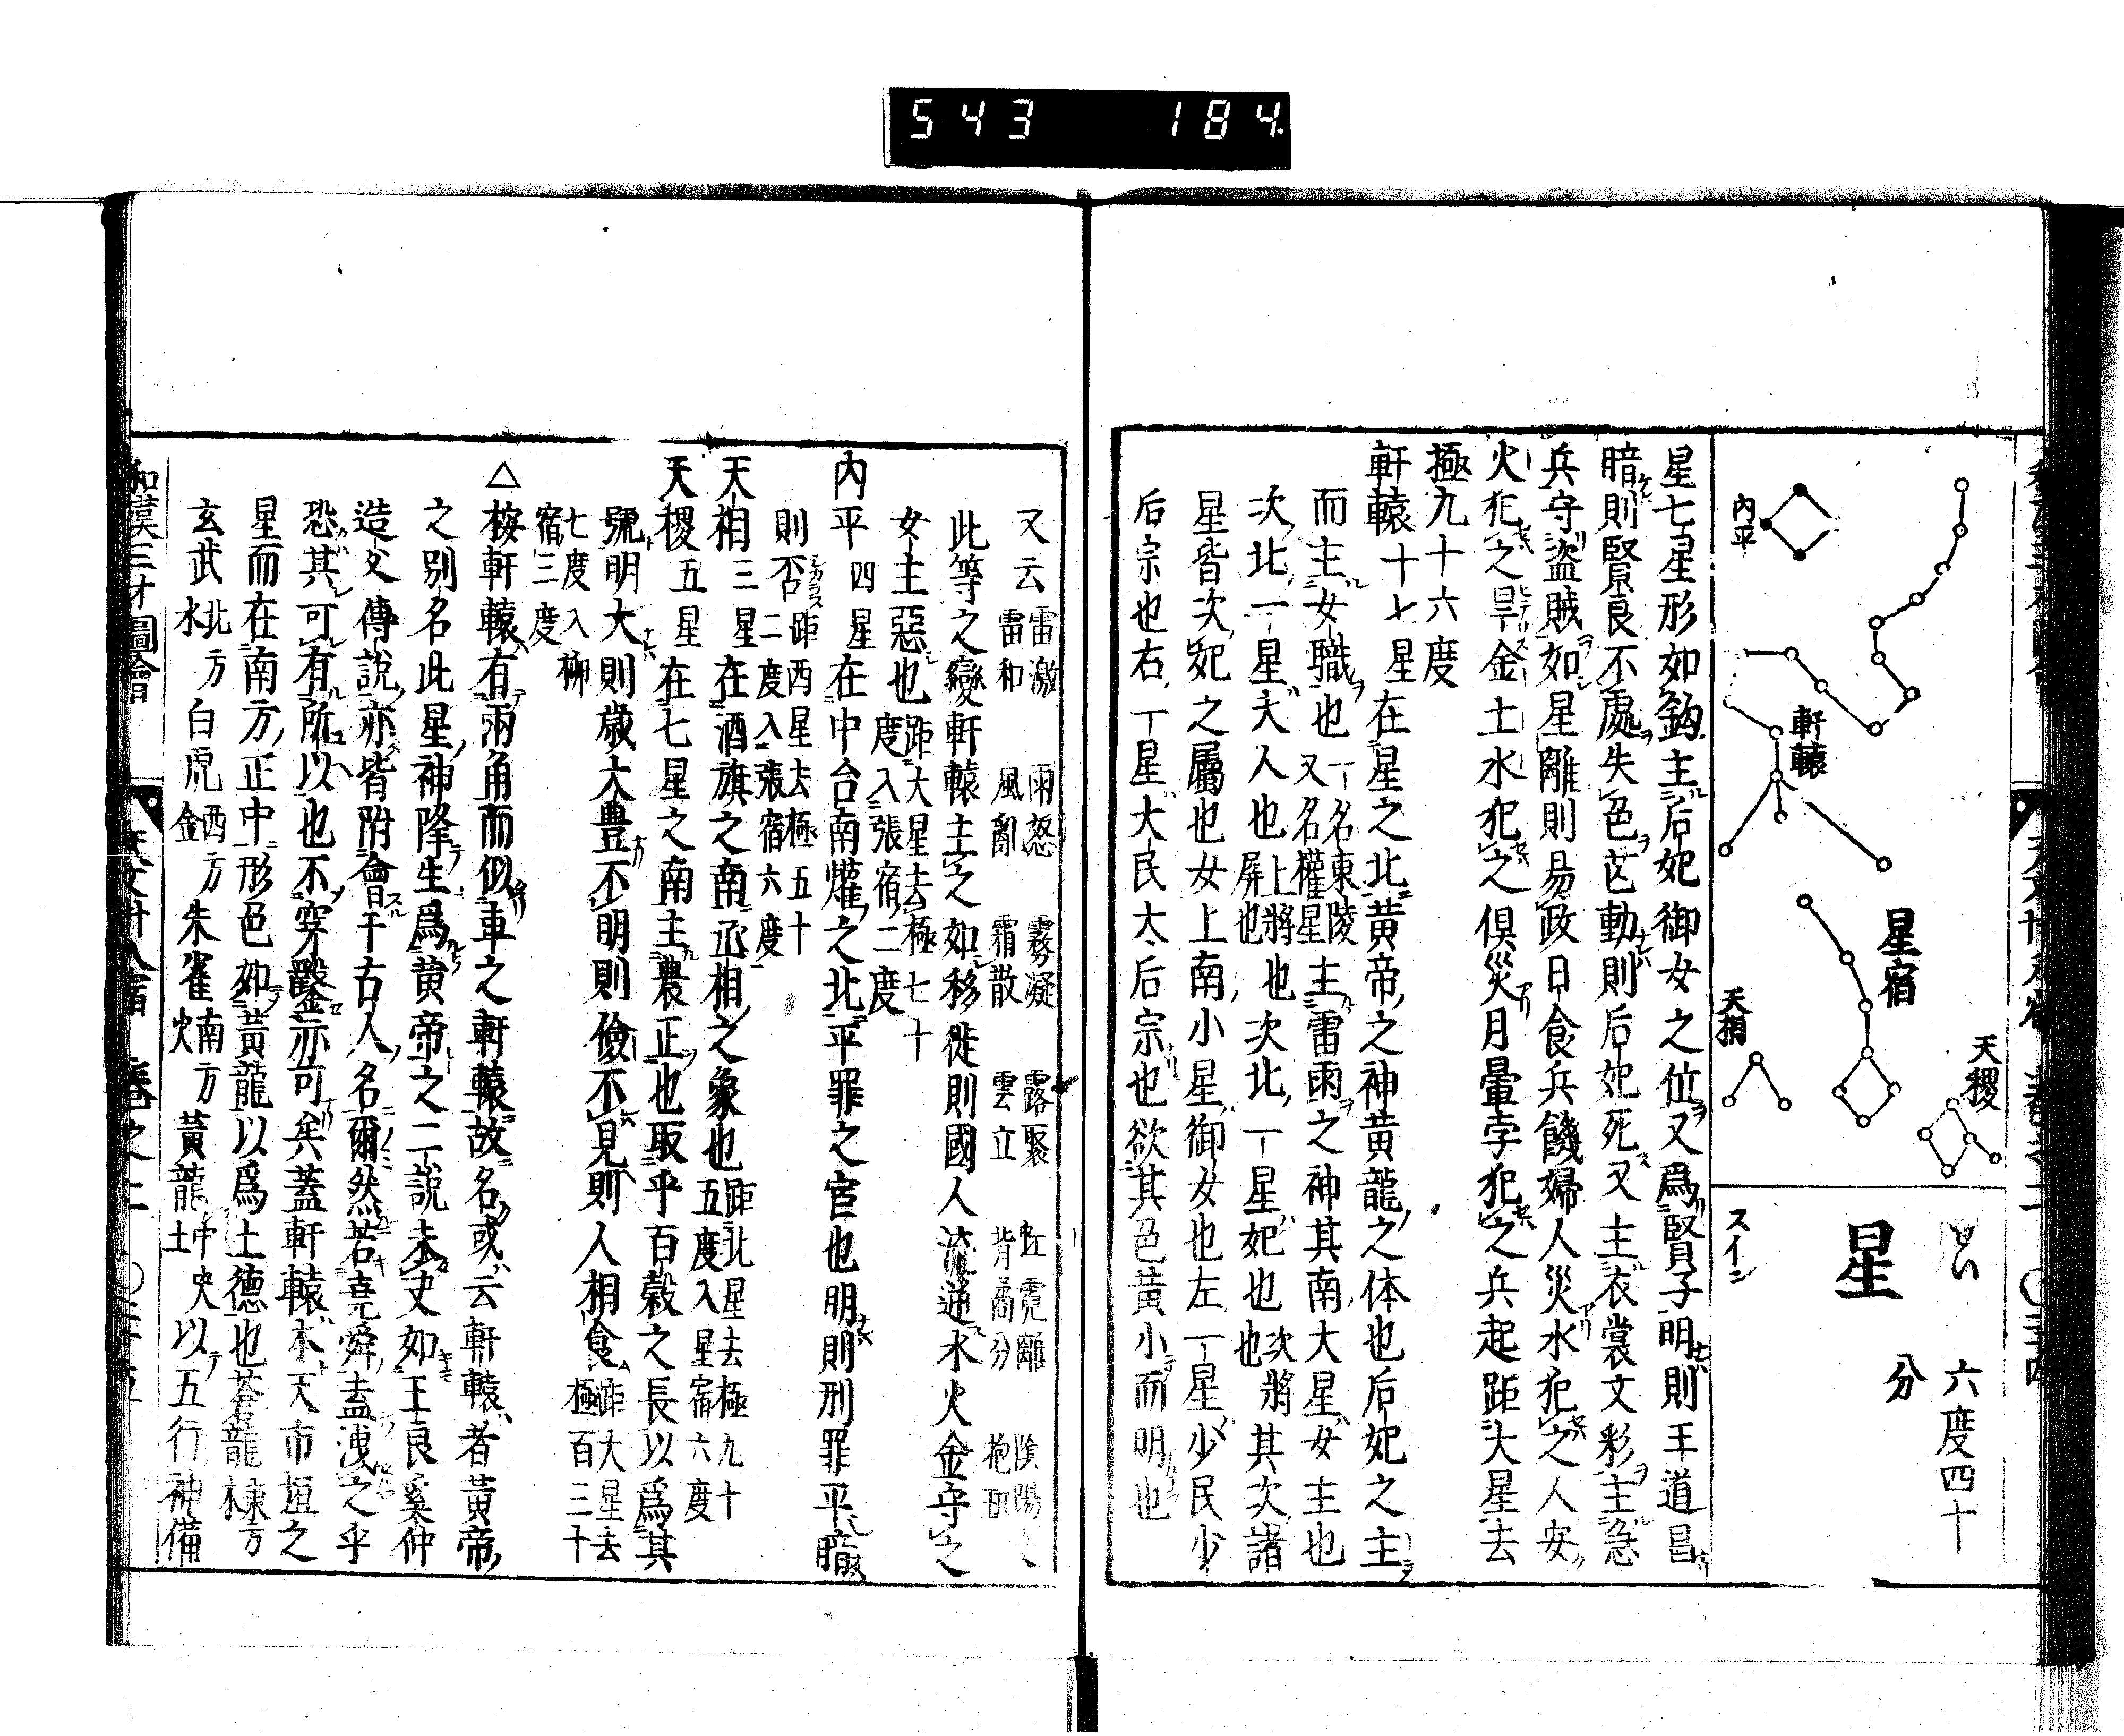 543 184
内平
軒轅
星宿
天相
天稷
せい
星
六度四十
分
スイン
星七星形如鈎主后妃御女之位又爲賢子明則王道昌
暗則賢良不處失色芒動則后妃死又主衣裳文彩主急
兵守盗賊如星離則易政日食兵饑婦人災水犯之人安
火犯之旱金土水犯之倶災月暈孛犯之兵起距大星去
極九十六度
軒轅十七星在星之北黄帝之神黄龍之体也后妃之主
而主女職也一名東陵又名權星主雷雨之神其南大星女主也
次北一星夫人也上將也屏也次北一星妃也次將也其次諸
星皆次妃之屬也女上南小星御女也左一星少民少
后宗也右一星大民大后宗也欲其色黄小而明也
又云雷激雷和雨怒風亂霧凝霜散露聚雲立虹霓離背矞分陰陽抱珥
此等之變軒轅主之如移徙則國人流逆水火金守之
女主惡也距大星去極七十度入張宿二度
内平四星在中台南爟之北平罪之官也明則刑罪平暗
則否距西星去極五十二度入張宿六度
天相三星在酒旗之南丞相之象也距北星去極九十五度入星宿六度
天稷五星在七星之南主農正也取乎百穀之長以爲其
號明大則歳大豊不明則儉不見則人相食距大星去極百三十
七度入柳宿三度
△桉軒轅有兩角而似車之軒轅故名或云軒轅者黄帝
之別名此星神降生爲黄帝之二說未决如王良奚仲
造父傳說亦皆附會千古人名爾然若堯舜盍洩之乎
恐其可有所以也不穿鑿亦可矣蓋軒轅本天市垣之
星而在南方正中形色如黄龍以爲土德也蒼龍東方木
玄武北方水白虎西方金朱雀南方火黄龍中央土以五行神備
和漢三才圖會 天文廿八宿 卷之二